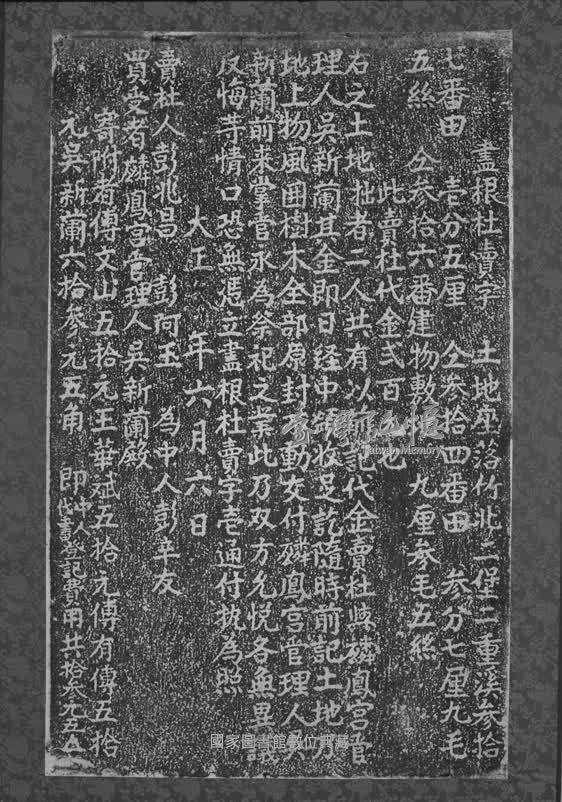 盡根杜賣字 土地座落竹北二堡二重溪參拾
七番田 壱分五厘 仝參拾四番田 參分七厘九毛
五絲 仝參拾六番建物敷地 九厘參毛五絲
此賣杜代金弍百
右之土地拙者二人共有以前記代金賣杜歸麟鳳宮管
理人吳新蘭其金即日経中領收足訖隨時前記土地及
地上物風囲樹木全部原封不動交付麟鳳宮管理人吳
新蘭前來掌管永為祭祀之業此乃双方允悦各無異議
反悔等情口恐無憑立盡根杜賣字壱通付执為照
大正 年六月六日
賣杜人彭兆昌 彭阿玉 為中人彭辛友
買受者麟鳳宮管理人吳新蘭殿
寄附者傅文山五拾元王華斌五拾元傅有傳五拾
元吳新蘭六拾參元五角 即中人代書登記費用共拾參元五
臺灣記憶
Taiwan Memory
國家圖書館數位典藏